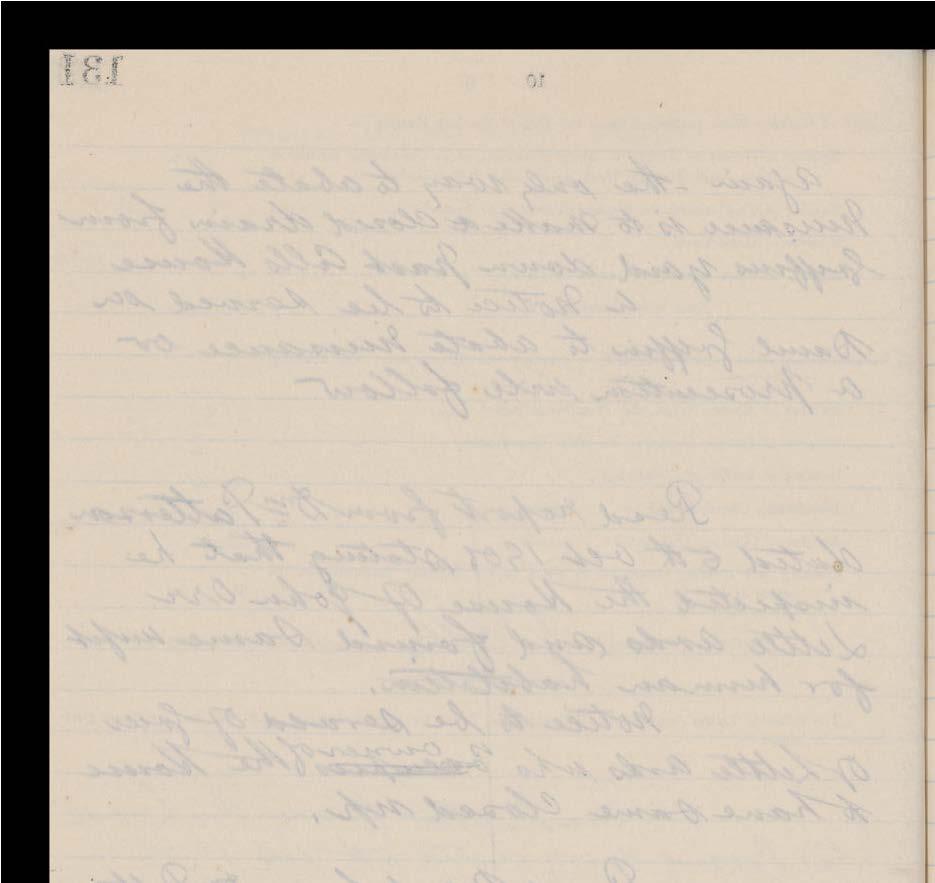 131
10
Again - the only way to abate the
Nuisance is to make a closed drain from
Griffins yard down past Cells house
a Notice to be served on
Same Griffin to abate nuisance or
a prosecution will follow
Read report from Dr Patterson
dated 5th Oct 1908 stating that he
inspected the house of John Orr
Little Ards and found same unfit
for human habitation.
Notice to be served of
of Little Ards who is owner of the house
to have same closed up.